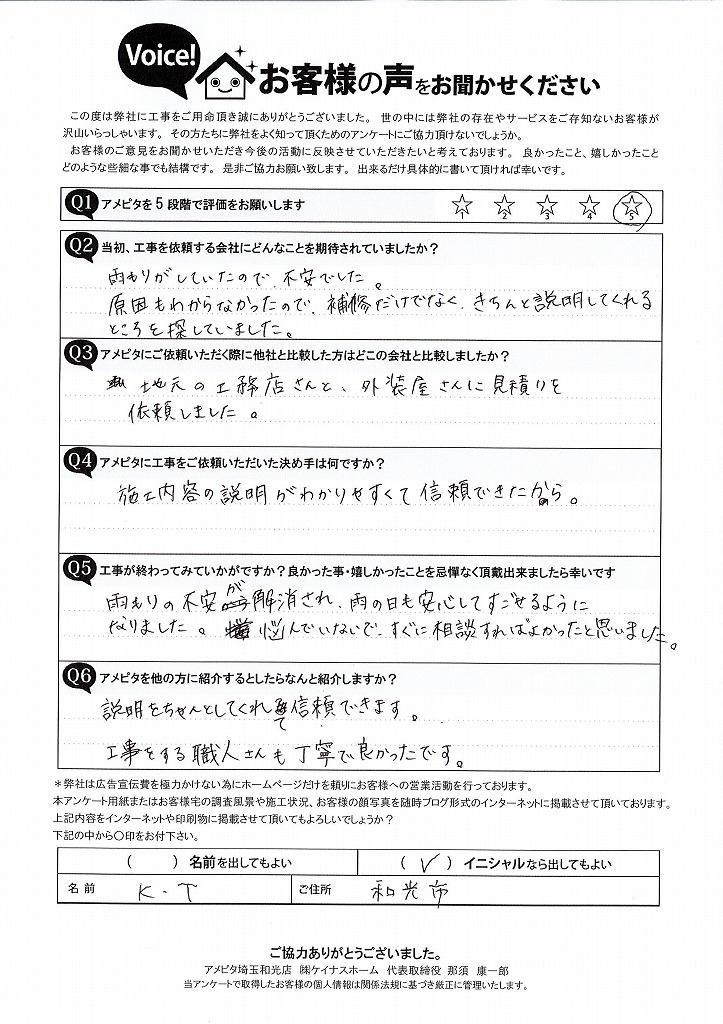 Voice!
お客様の声をお聞かせください
この度は弊社に工事をご用命頂き誠にありがとうございました。 世の中には弊社の存在やサービスをご存知ないお客様が
沢山いらっしゃいます。 その方たちに弊社をよく知って頂くためのアンケートにご協力頂けないでしょうか。
お客様のご意見をお聞かせいただき今後の活動に反映させていただきたいと考えております。 良かったこと、嬉しかったこと
どのような些細な事でも結構です。 是非ご協力お願い致します。 出来るだけ具体的に書いて頂ければ幸いです。
Q1 アメピタを5段階で評価をお願いします 1 2 3 4 5
Q2 当初、工事を依頼する会社にどんなことを期待されていましたか？
雨もりがしていたので、不安でした。
原因もわからなかったので、補修だけでなく、きちんと説明してくれる
ところを探していました。
Q3 アメピタにご依頼いただく際に他社と比較した方はどこの会社と比較しましたか？
地元の工務店さんと、外装屋さんに見積りを
依頼しました。
Q4 アメピタに工事をご依頼いただいた決め手は何ですか？
施工内容の説明がわかりやすくて信頼できたから。
Q5 工事が終わってみていかがですか？良かった事・嬉しかったことを忌憚なく頂戴出来ましたら幸いです
雨もりの不安が解消され、雨の日も安心してすごせるように
なりました。 悩んでいないで、すぐに相談すればよかったと思いました。
Q6 アメピタを他の方に紹介するとしたらなんと紹介しますか？
説明をちゃんとしてくれて信頼できます。
工事をする職人さんも丁寧で良かったです。
＊弊社は広告宣伝費を極力かけない為にホームページだけを頼りにお客様への営業活動を行っております。
本アンケート用紙またはお客様宅の調査風景や施工状況、お客様の顔写真を随時ブログ形式のインターネットに掲載させて頂いております。
上記内容をインターネットや印刷物に掲載させて頂いてもよろしいでしょうか？
下記の中から〇印をお付下さい。
（　　）名前を出してもよい （ ✓ ）イニシャルなら出してもよい
名前 K.T ご住所 和光市
ご協力ありがとうございました。
アメピタ埼玉和光店 ㈱ケイナスホーム 代表取締役 那須 康一郎
当アンケートで取得したお客様の個人情報は関係法規に基づき厳正に管理いたします。